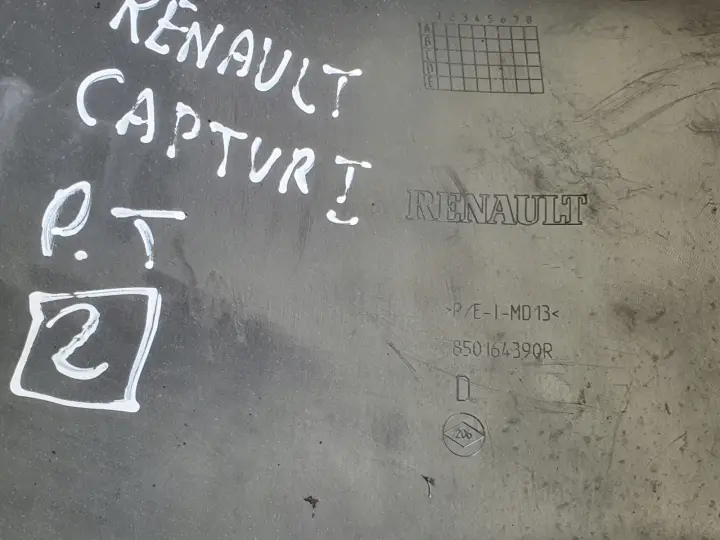 RENAULT
CAPTUR I
P.T
2
1 2 3 4 5 6 7 8
A
B
C
D
E
RENAULT
>P/E-I-MD13<
850164390R
D
206